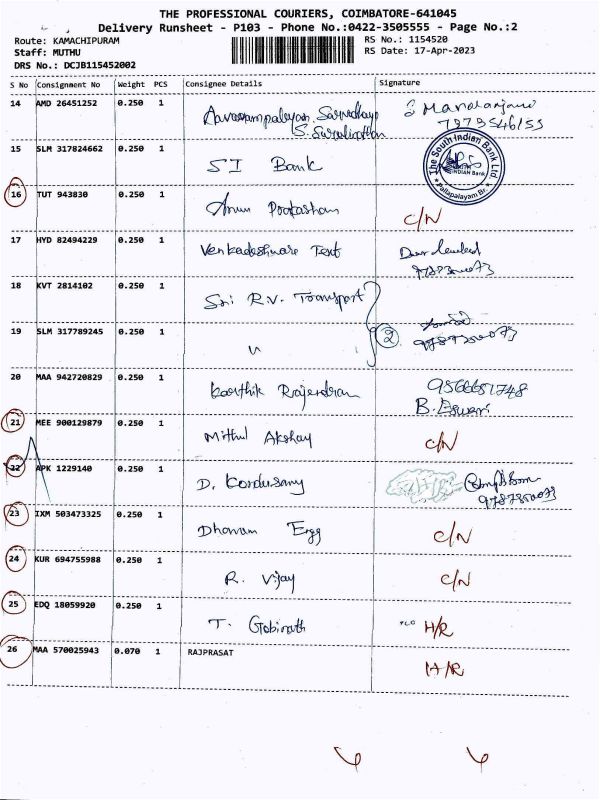 THE PROFESSIONAL COURIERS, COIMBATORE-641045
Delivery Runsheet - P103 - Phone No.:0422-3505555 - Page No.:2
Route: KAMACHIPURAM RS No.: 1154520
Staff: MUTHU RS Date: 17-Apr-2023
DRS No.: DCJB115452002
S No Consignment No Weight PCS Consignee Details Signature
14 AMD 26451252 0.250 1
15 SLM 317824662 0.250 1 SI Bank The South Indian Bank Ltd. Pallapalayam Br.
16 TUT 943830 0.250 1 C/N
17 HYD 82494229 0.250 1 Venkadeshware Text
18 KVT 2814102 0.250 1 Sri R.V. Transport
19 SLM 317789245 0.250 1 " 2
20 MAA 942720829 0.250 1 Karthik Rajendran
B. Eswari
21 MEE 900129879 0.250 1 Mithul Akshay C/N
22 APK 1229140 0.250 1 D.
23 IXM 503473325 0.250 1 C/N
24 KUR 694755988 0.250 1 R. Vijay C/N
25 EDQ 18059920 0.250 1 T. Gobinath H/R
26 MAA 570025943 0.070 1 RAJPRASAT H/R